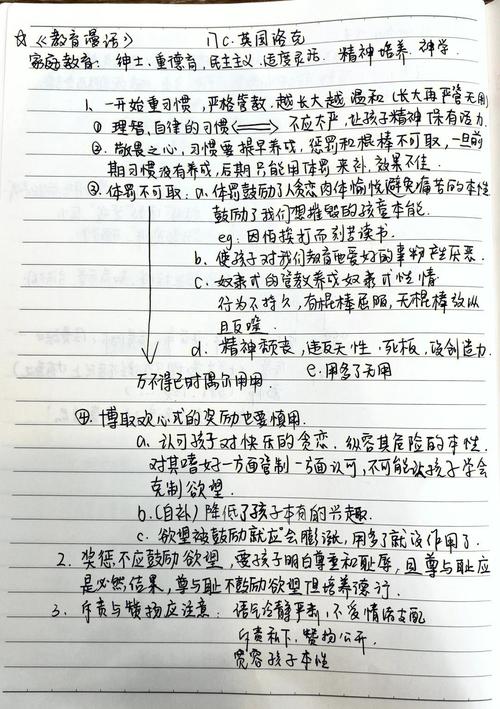 ☆《教育漫话》 17C.英国洛克
家庭教育: 绅士、重德育,民主主义、适度灵活. 精神培养. 神学.
1. 一开始重习惯,严格管教.越长大越温和(长大再严管无用)
① 理智、自律的习惯 <=> 不应太严,让孩子精神保有活力.
②. 敬畏之心,习惯要提早养成,惩罚和棍棒不可取,一旦前
期习惯没有养成,后期只能用体罚来补,效果不佳.
③. 体罚不可取: a. 体罚鼓励了人贪恋肉体愉悦避免痛苦的本性
鼓励了我们想摧毁的孩童本能.
eg: 因怕挨打而刻苦读书.
b. 使孩子对我们教育他爱好的事物产生厌恶.
c. 奴隶式的管教养成奴隶式性情
行为不持久,有棍棒屈服,无棍棒放纵
且反噬.
d. 精神颓丧,违反天性.死板,没创造力.
e. 用多了无用
万不得已时偶尔用用.
④. 博取欢心式的奖励也要慎用.
a. 认可孩子对快乐的贪恋.纵容其危险的本性.
对其嗜好一方面管制一方面认可,不可能让孩子学会
克制欲望.
b.(自补)降低了孩子本有的兴趣.
c. 欲望被鼓励就应会膨涨,用多了就没作用了.
2. 奖惩不应鼓励欲望,要孩子明白尊重和耻辱,且尊与耻应
是必然结果,尊与耻不鼓励欲望但培养德行.
3. 斥责与赞扬应注意: 语气冷静严肃,不受情绪支配
斥责私下,赞扬公开.
宽容孩子本性